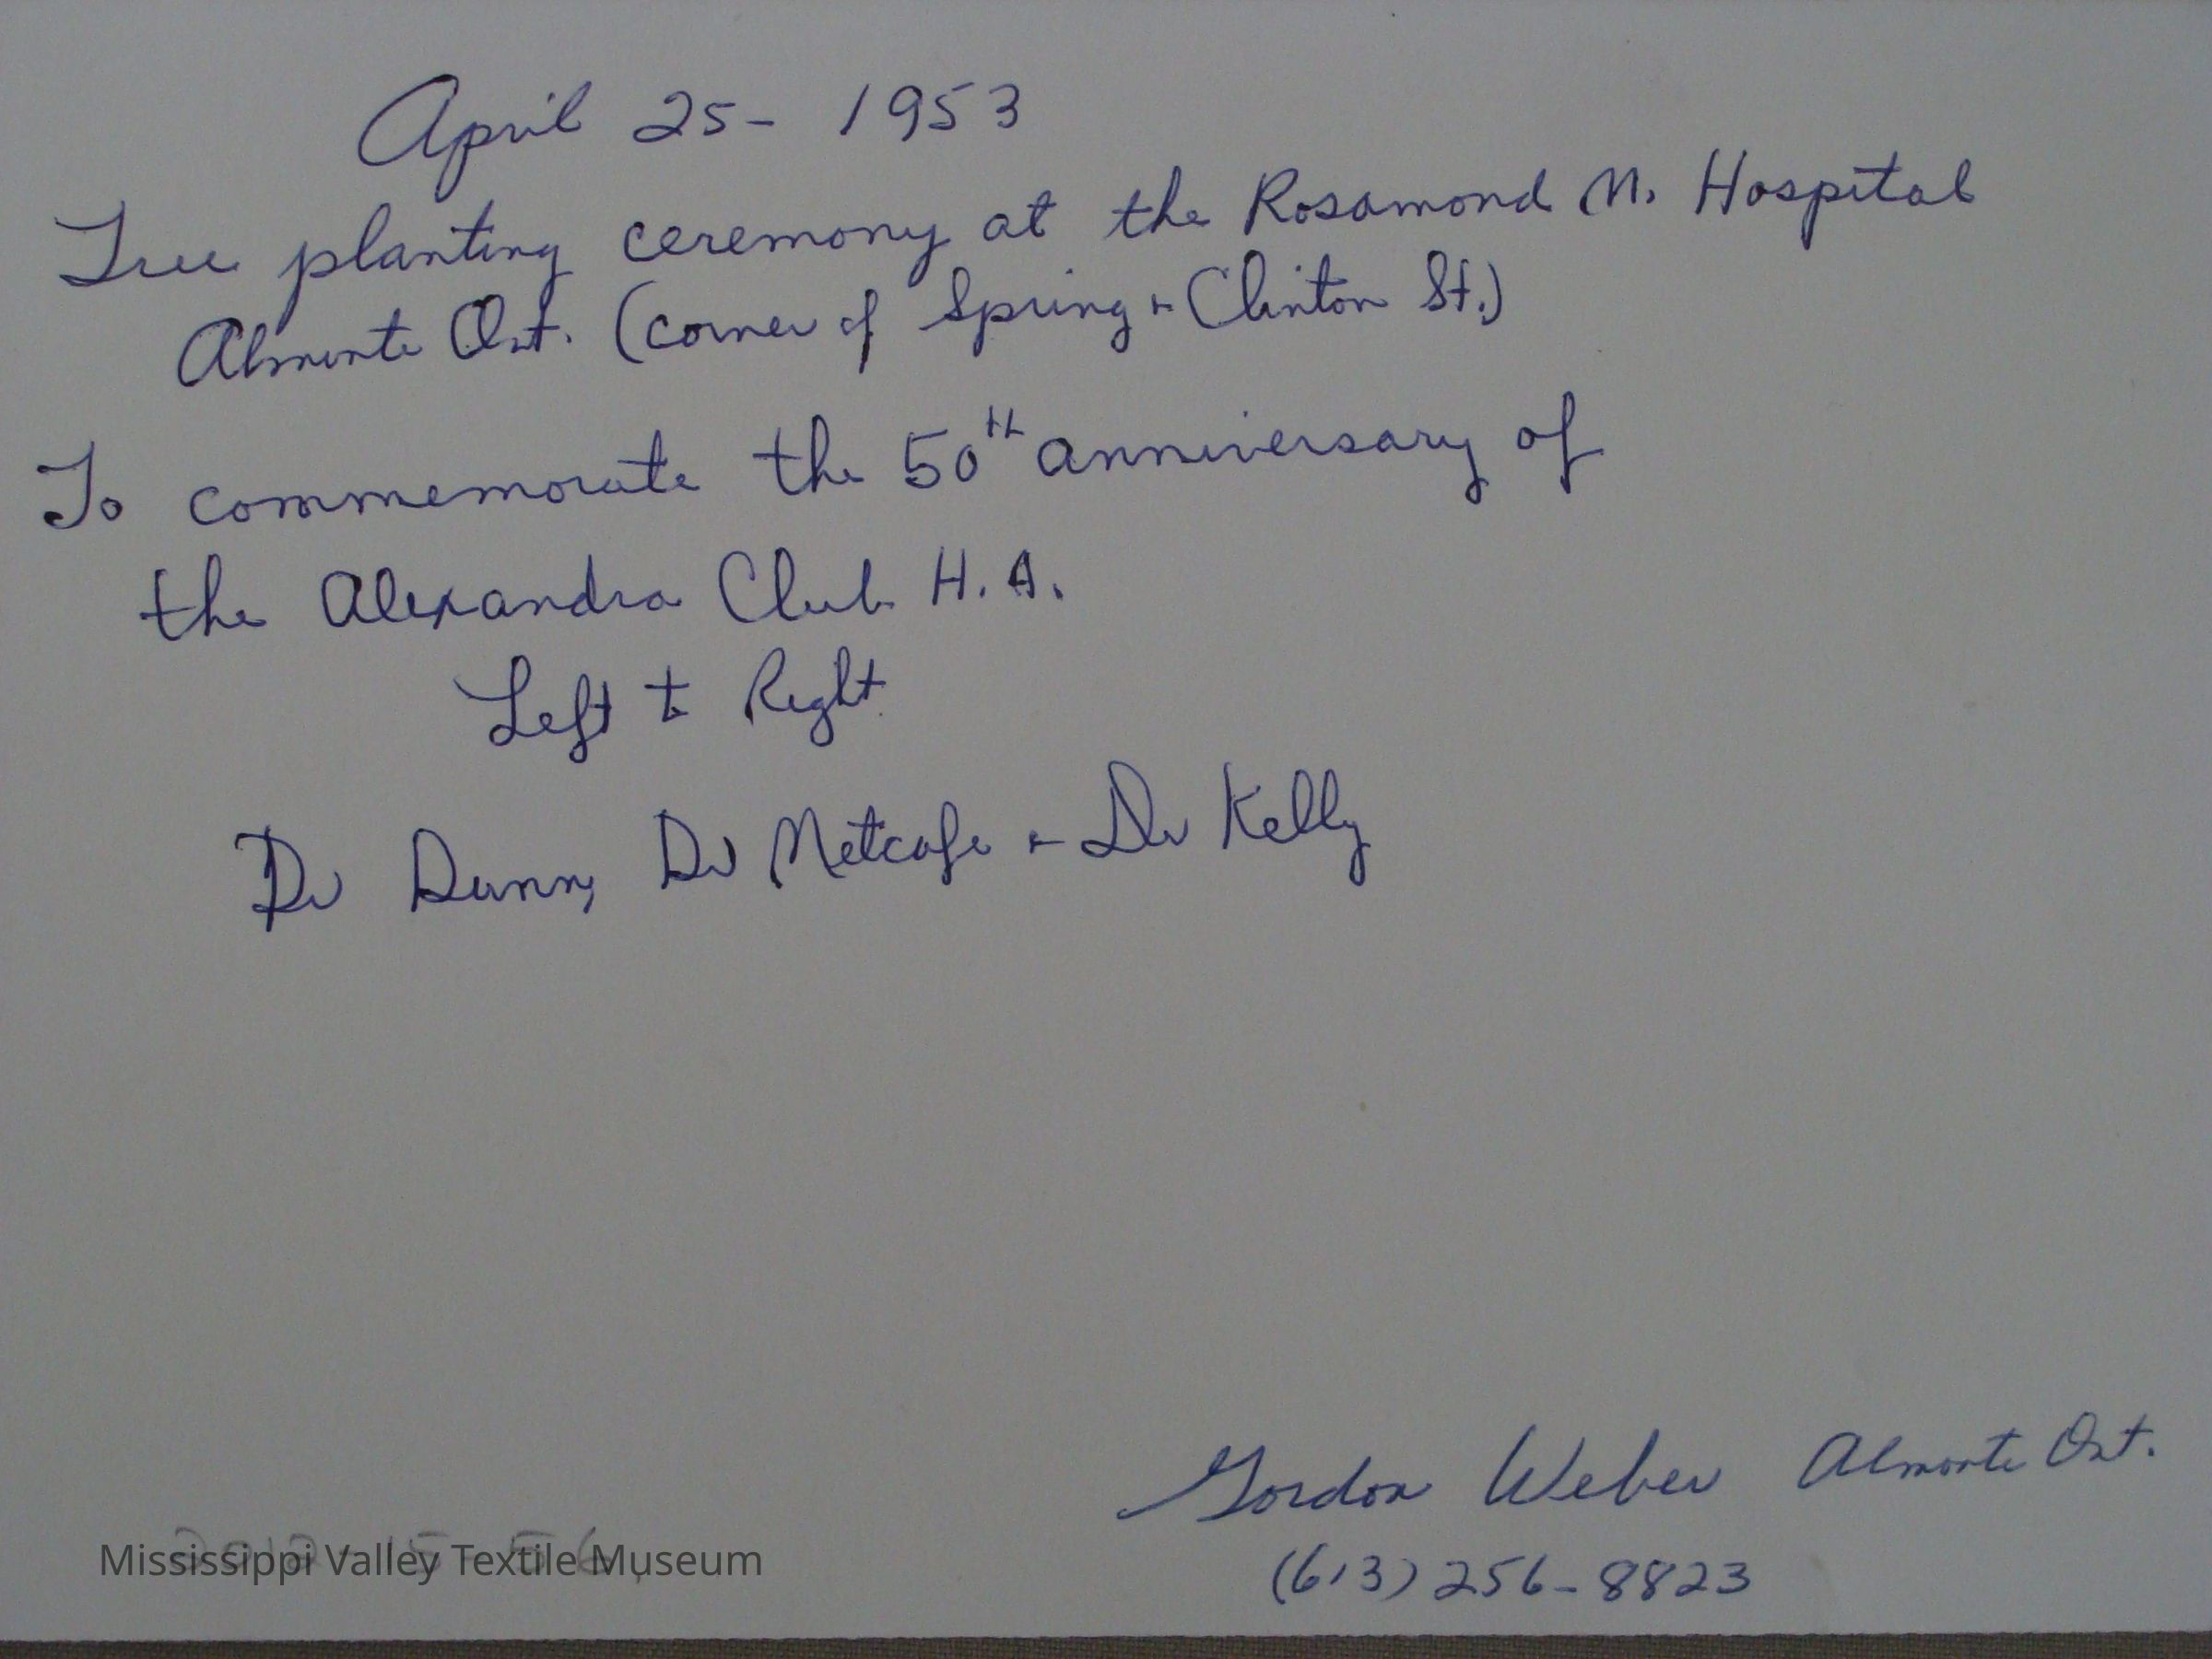 April 25- 1953
Tree planting ceremony at the Rosamond M. Hospital
Almonte Ont. (corner of Spring & Clinton St.)
To commemorate the 50th anniversary of
the Alexandra Club H.A.
Left to Right
Dr Dunn, Dr Metcafe & Dr Kelly
Gordon Weber Almonte Ont.
(613) 256-8823
Mississippi Valley Textile Museum